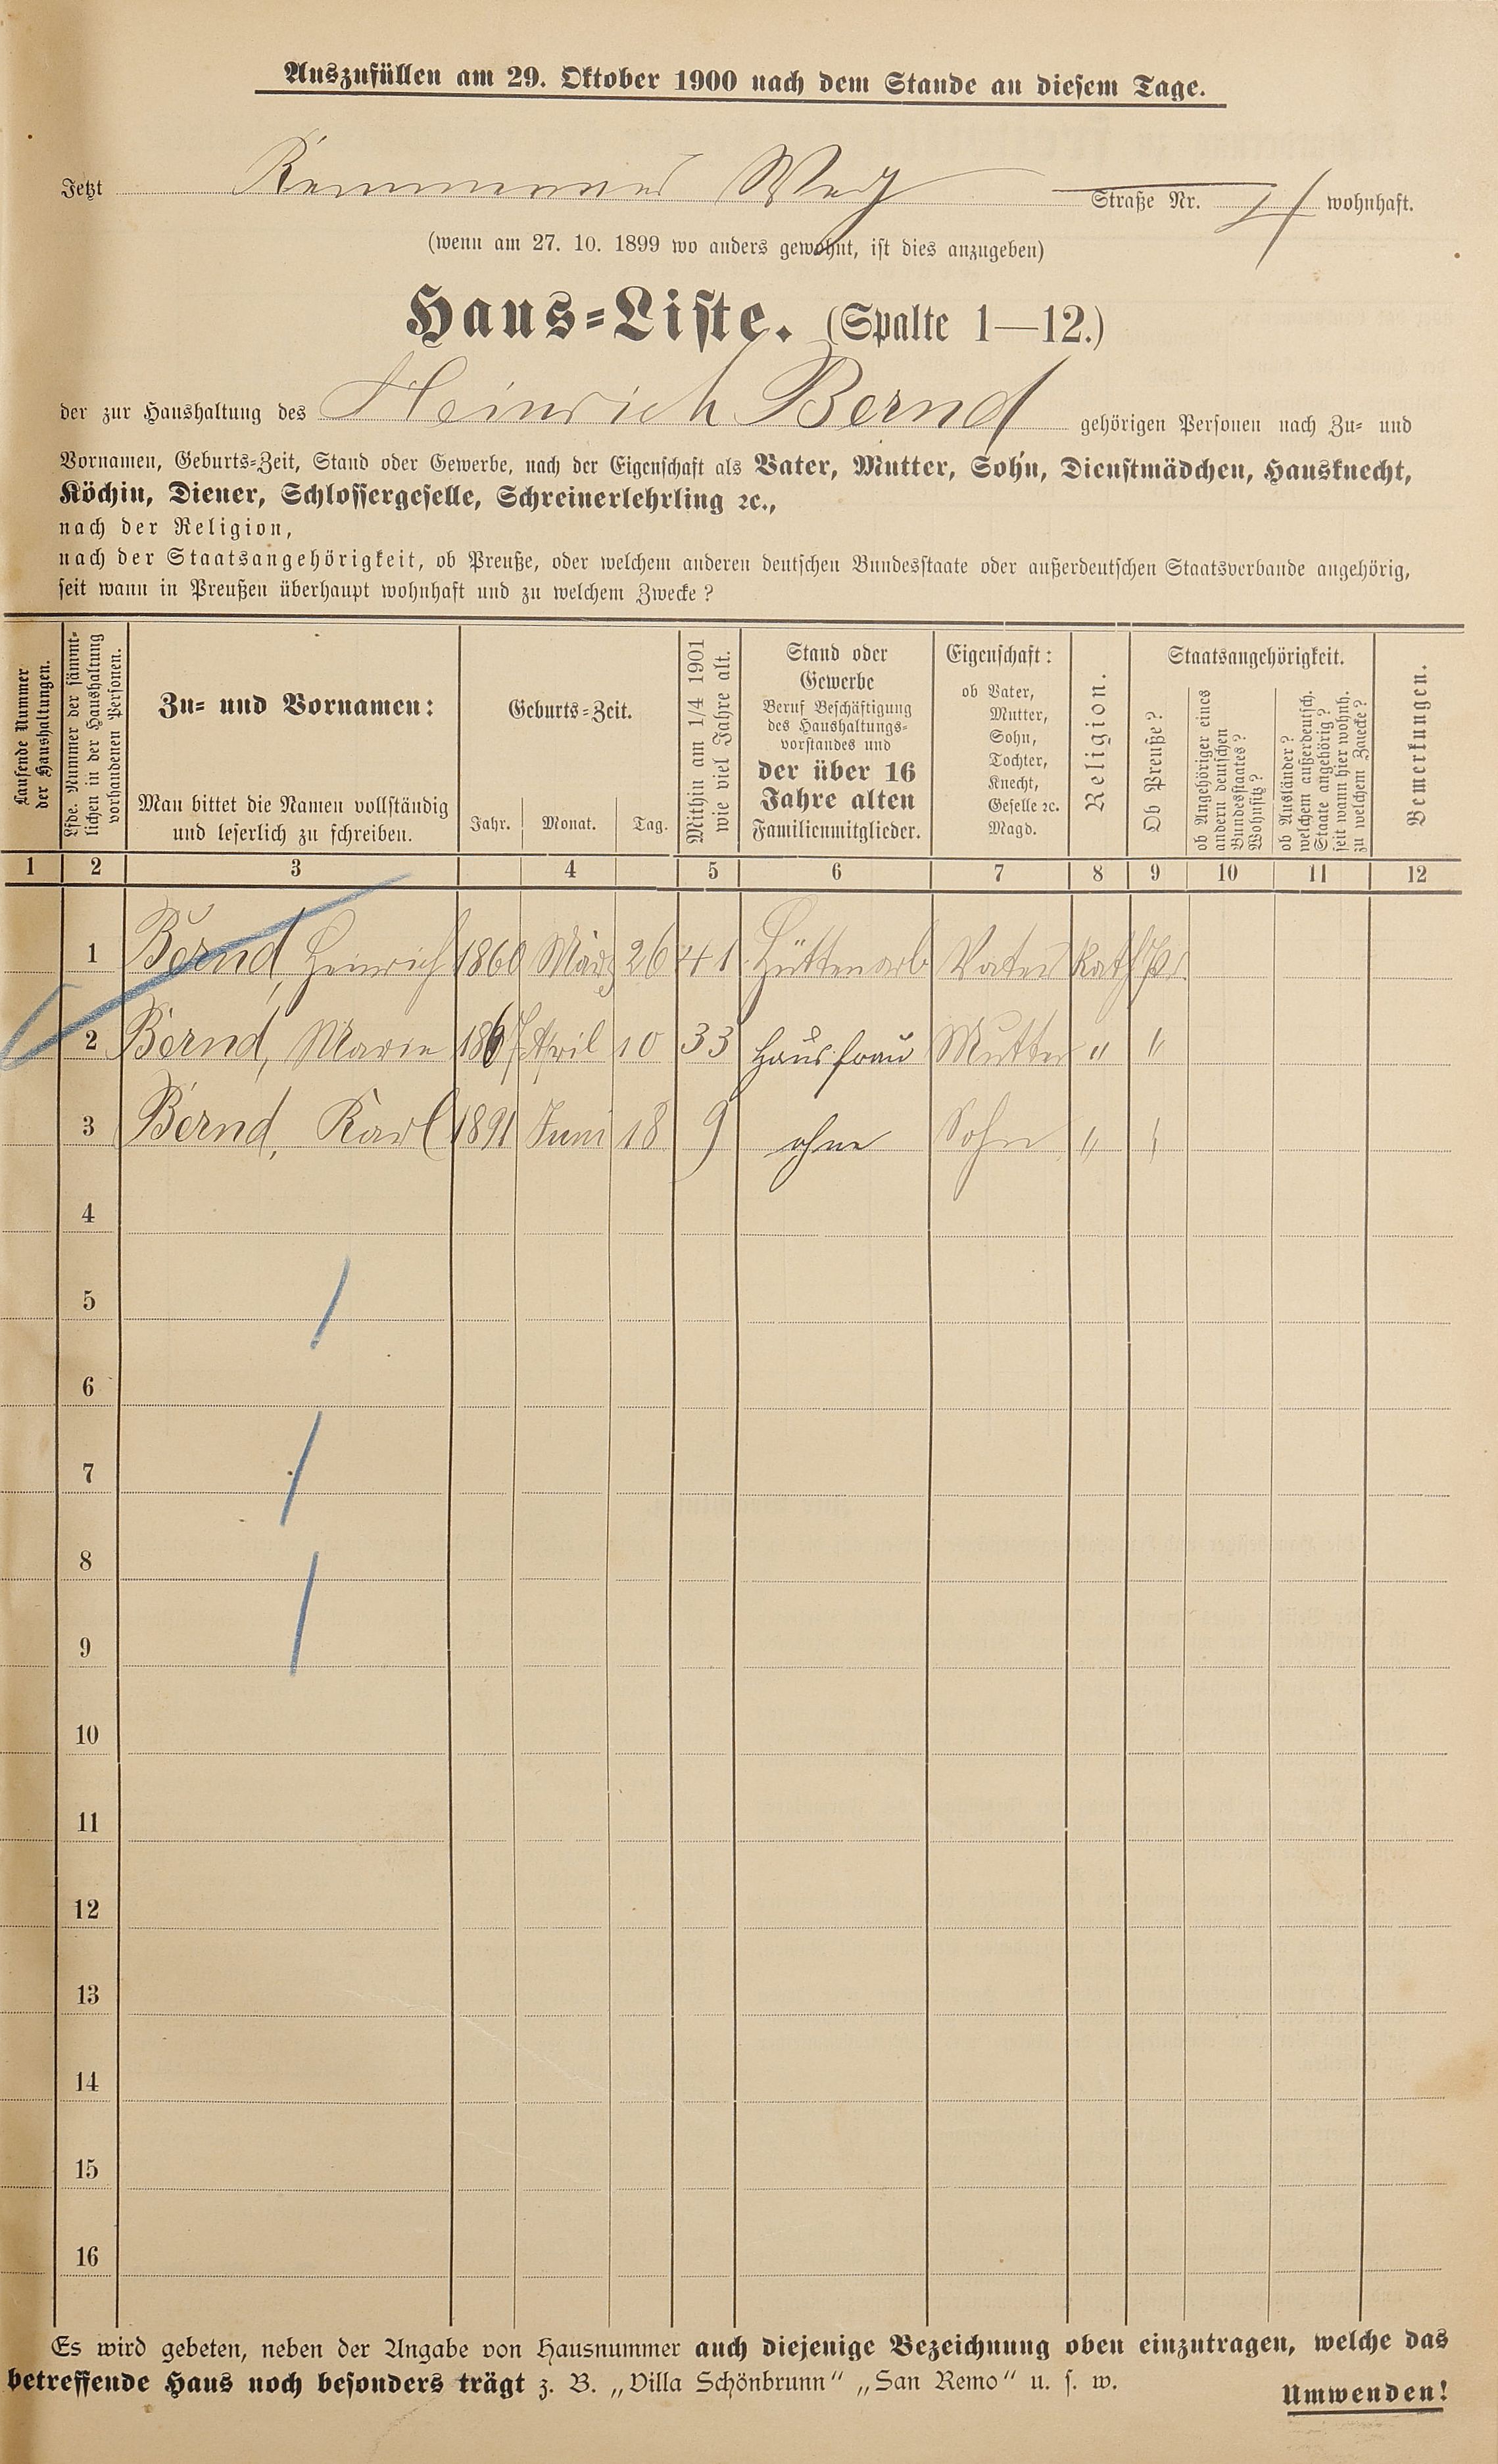 Auszufüllen am 29. Oktober 1900 nach dem Stande an diesem Tage.
Jetzt Remmerner Weg Straße Nr. 21 wohnhaft.
(wenn am 27. 10. 1899 wo anders gewohnt, ist dies anzugeben)
Haus-Liste. (Spalte 1—12.)
der zur Haushaltung des Heinrich Bernd gehörigen Personen nach Zu- und
Vornamen, Geburts-Zeit, Stand oder Gewerbe, nach der Eigenschaft als Vater, Mutter, Sohn, Dienstmädchen, Hausknecht,
Köchin, Diener, Schlossergeselle, Schreinerlehrling ꝛc.,
nach der Religion,
nach der Staatsangehörigkeit, ob Preuße, oder welchem anderen deutschen Bundesstaate oder außerdeutschen Staatsverbande angehörig,
seit wann in Preußen überhaupt wohnhaft und zu welchem Zwecke?
Laufende Nummer
der Haushaltungen.
Lfde. Nummer der sämmt-
lichen in der Haushaltung
vorhandenen Personen.
Zu- und Vornamen:
Man bittet die Namen vollständig
und leserlich zu schreiben.
Geburts-Zeit.
Jahr. Monat. Tag.
Mithin am 1/4 1901
wie viel Jahre alt.
Stand oder
Gewerbe
Beruf Beschäftigung
des Haushaltungs-
vorstandes und
der über 16
Jahre alten
Familienmitglieder.
Eigenschaft:
ob Vater,
Mutter,
Sohn,
Tochter,
Knecht,
Geselle ꝛc.
Magd.
Religion.
Staatsangehörigkeit.
Ob Preuße?
ob Angehöriger eines
andern deutschen
Bundesstaates?
Wohnsitz?
ob Ausländer?
welchem außerdeutsch.
Staate angehörig?
seit wann hier wohnh.
zu welchem Zwecke?
Bemerkungen.
1 2 3 4 5 6 7 8 9 10 11 12
1 Bernd, Heinrich 1860 März 26 41 Hüttenarb Vater Kath Pr.
2 Bernd, Marie 1867 April 10 33 Hausfrau Mutter " "
3 Bernd, Karl 1891 Juni 18 9 ohne Sohn " "
4
5
6
7
8
9
10
11
12
13
14
15
16
Es wird gebeten, neben der Angabe von Hausnummer auch diejenige Bezeichnung oben einzutragen, welche das
betreffende Haus noch besonders trägt z. B. „Villa Schönbrunn“ „San Remo“ u. s. w.
Umwenden!